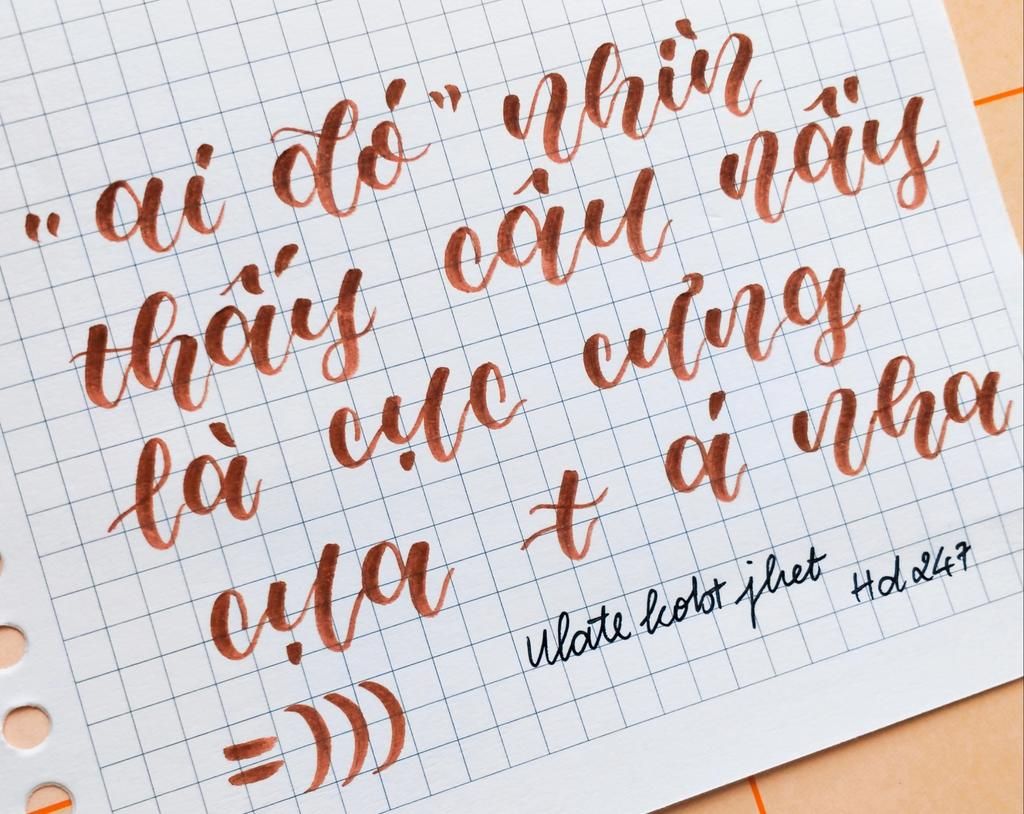 "ai đó" nhìn
thấy câu nấy
là cực cưng
cụa t á nha
=)))
Ulate kobt jhet Hd247